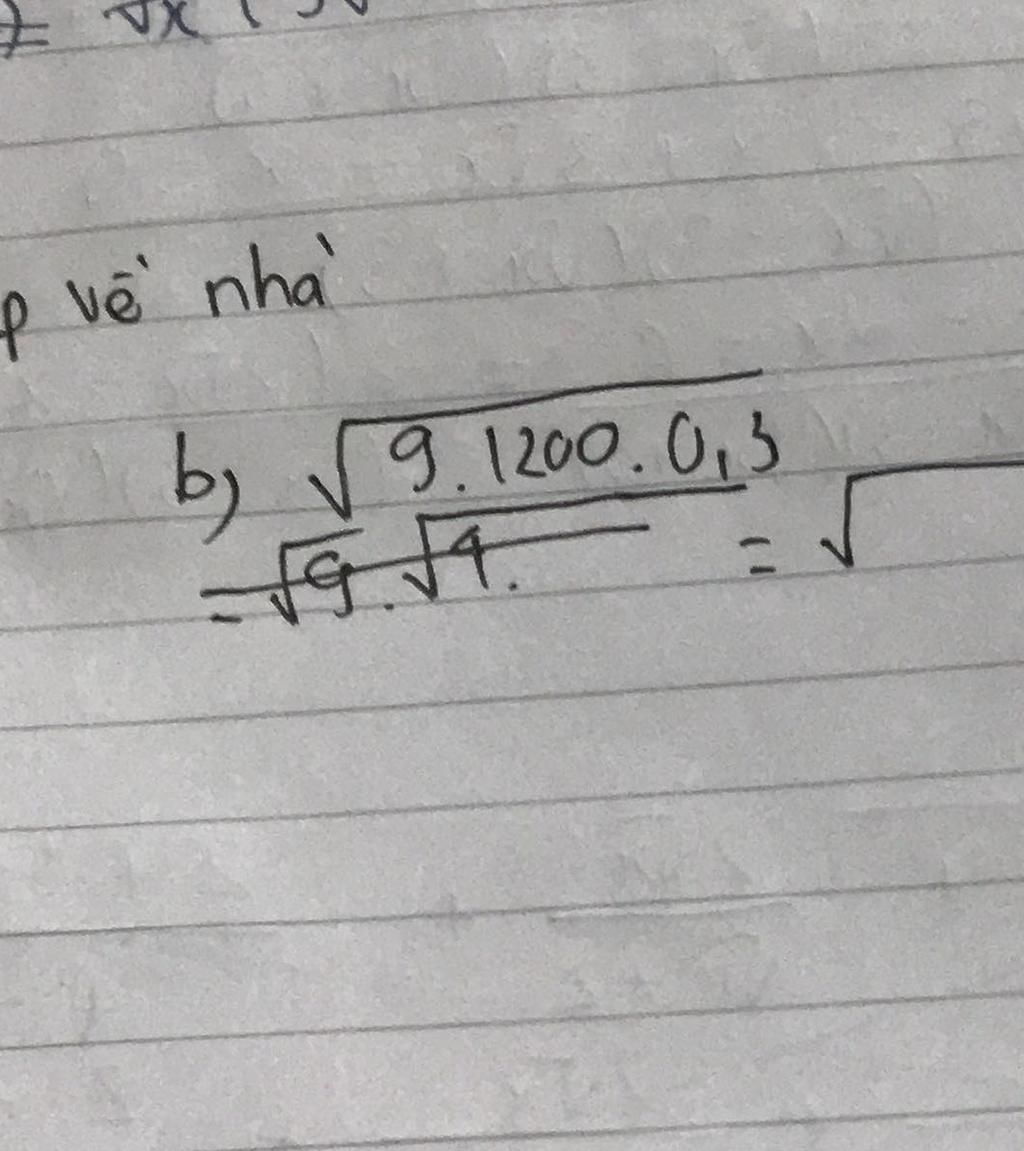 √x
p về nhà
b) √9.1200.0,3
= √9.√4. = √